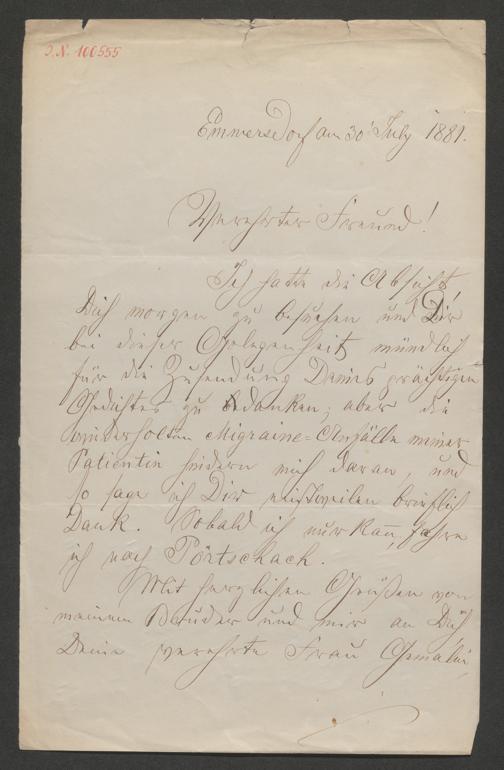 J. N. 100555
Emmersdorf am 30' July 1881.
Verehrter Freund!
Ich hatte die Absicht
Dich morgen zu besuchen und Dir
bei dieser Gelegenheit mündlich
für die Zusendung Deines prächtigen
Gedichtes zu danken; aber die
wiederholten Migraine-Anfälle meiner
Patientin hindern mich daran, und
so sage ich Dir einstweilen brieflich
Dank. Sobald ich nur kan̄, fahre
ich nach Pörtschach.
Mit herzlichen Grüßen von
meinem Bruder und mir an Dich
Deine verehrte Frau Gemalin,